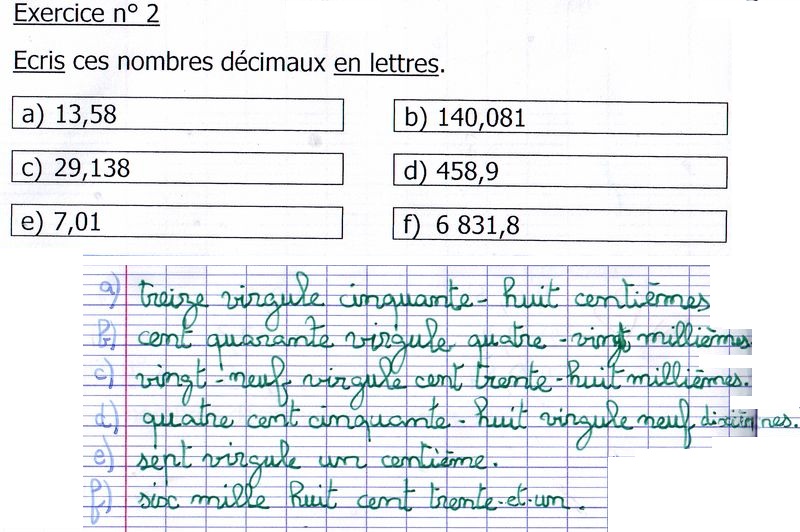 Exercice n° 2
Ecris ces nombres décimaux en lettres.
a) 13,58
b) 140,081
c) 29,138
d) 458,9
e) 7,01
f) 6 831,8
a) treize virgule cinquante - huit centièmes
b) cent quarante virgule quatre - vingt millièmes
c) vingt - neuf virgule cent trente - huit millièmes.
d) quatre cent cinquante - huit virgule neuf
e) sept virgule un centième.
f) six mille huit cent trente-et-un.